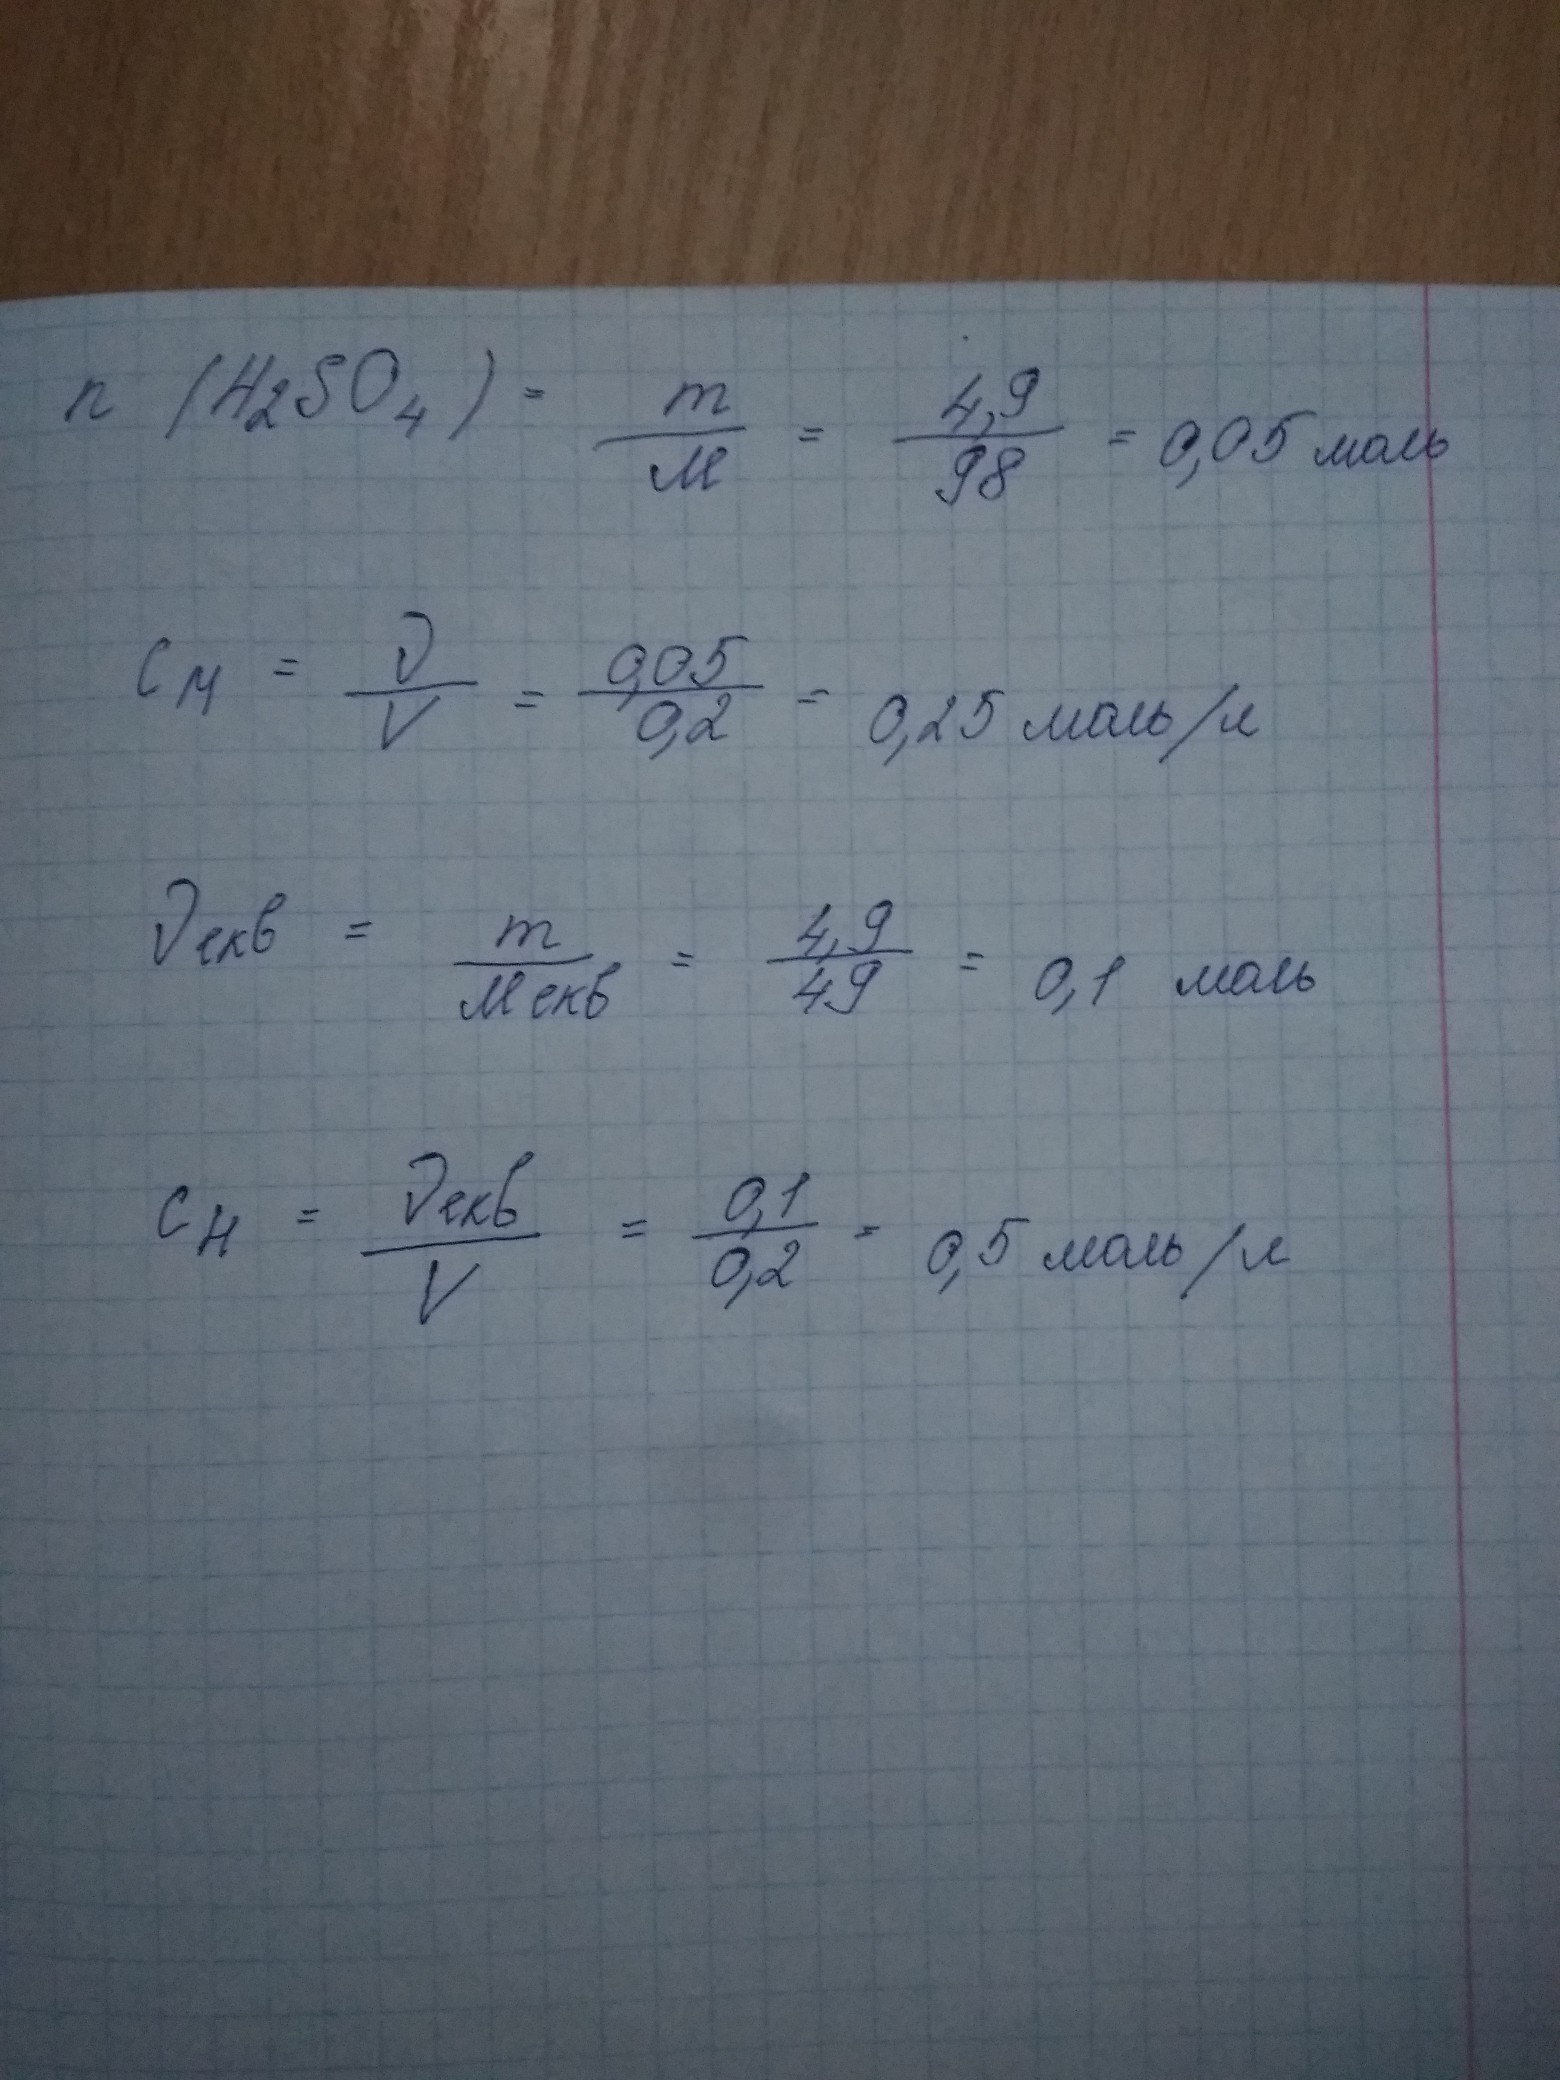 n (H₂SO₄) = m/M = 4,9/98 = 0,05 моль
Cм = ν/V = 0,05/0,2 = 0,25 моль/л
νекв = m/Mекв = 4,9/49 = 0,1 моль
Cн = νекв/V = 0,1/0,2 = 0,5 моль/л